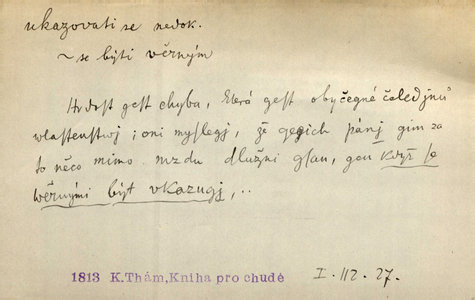 ukazovati se nedok.
~ se býti věrným
Hrdost gest chyba, která gest obyčegné čeledjnů
wlastenstwj; oni myslegj, že gegich pánj gim za
to něco mimo mzdu dlužni gsau, gen když se
wěrnými být vkazugj,..
1813 K.Thám,Kniha pro chudé I. 112. 27.